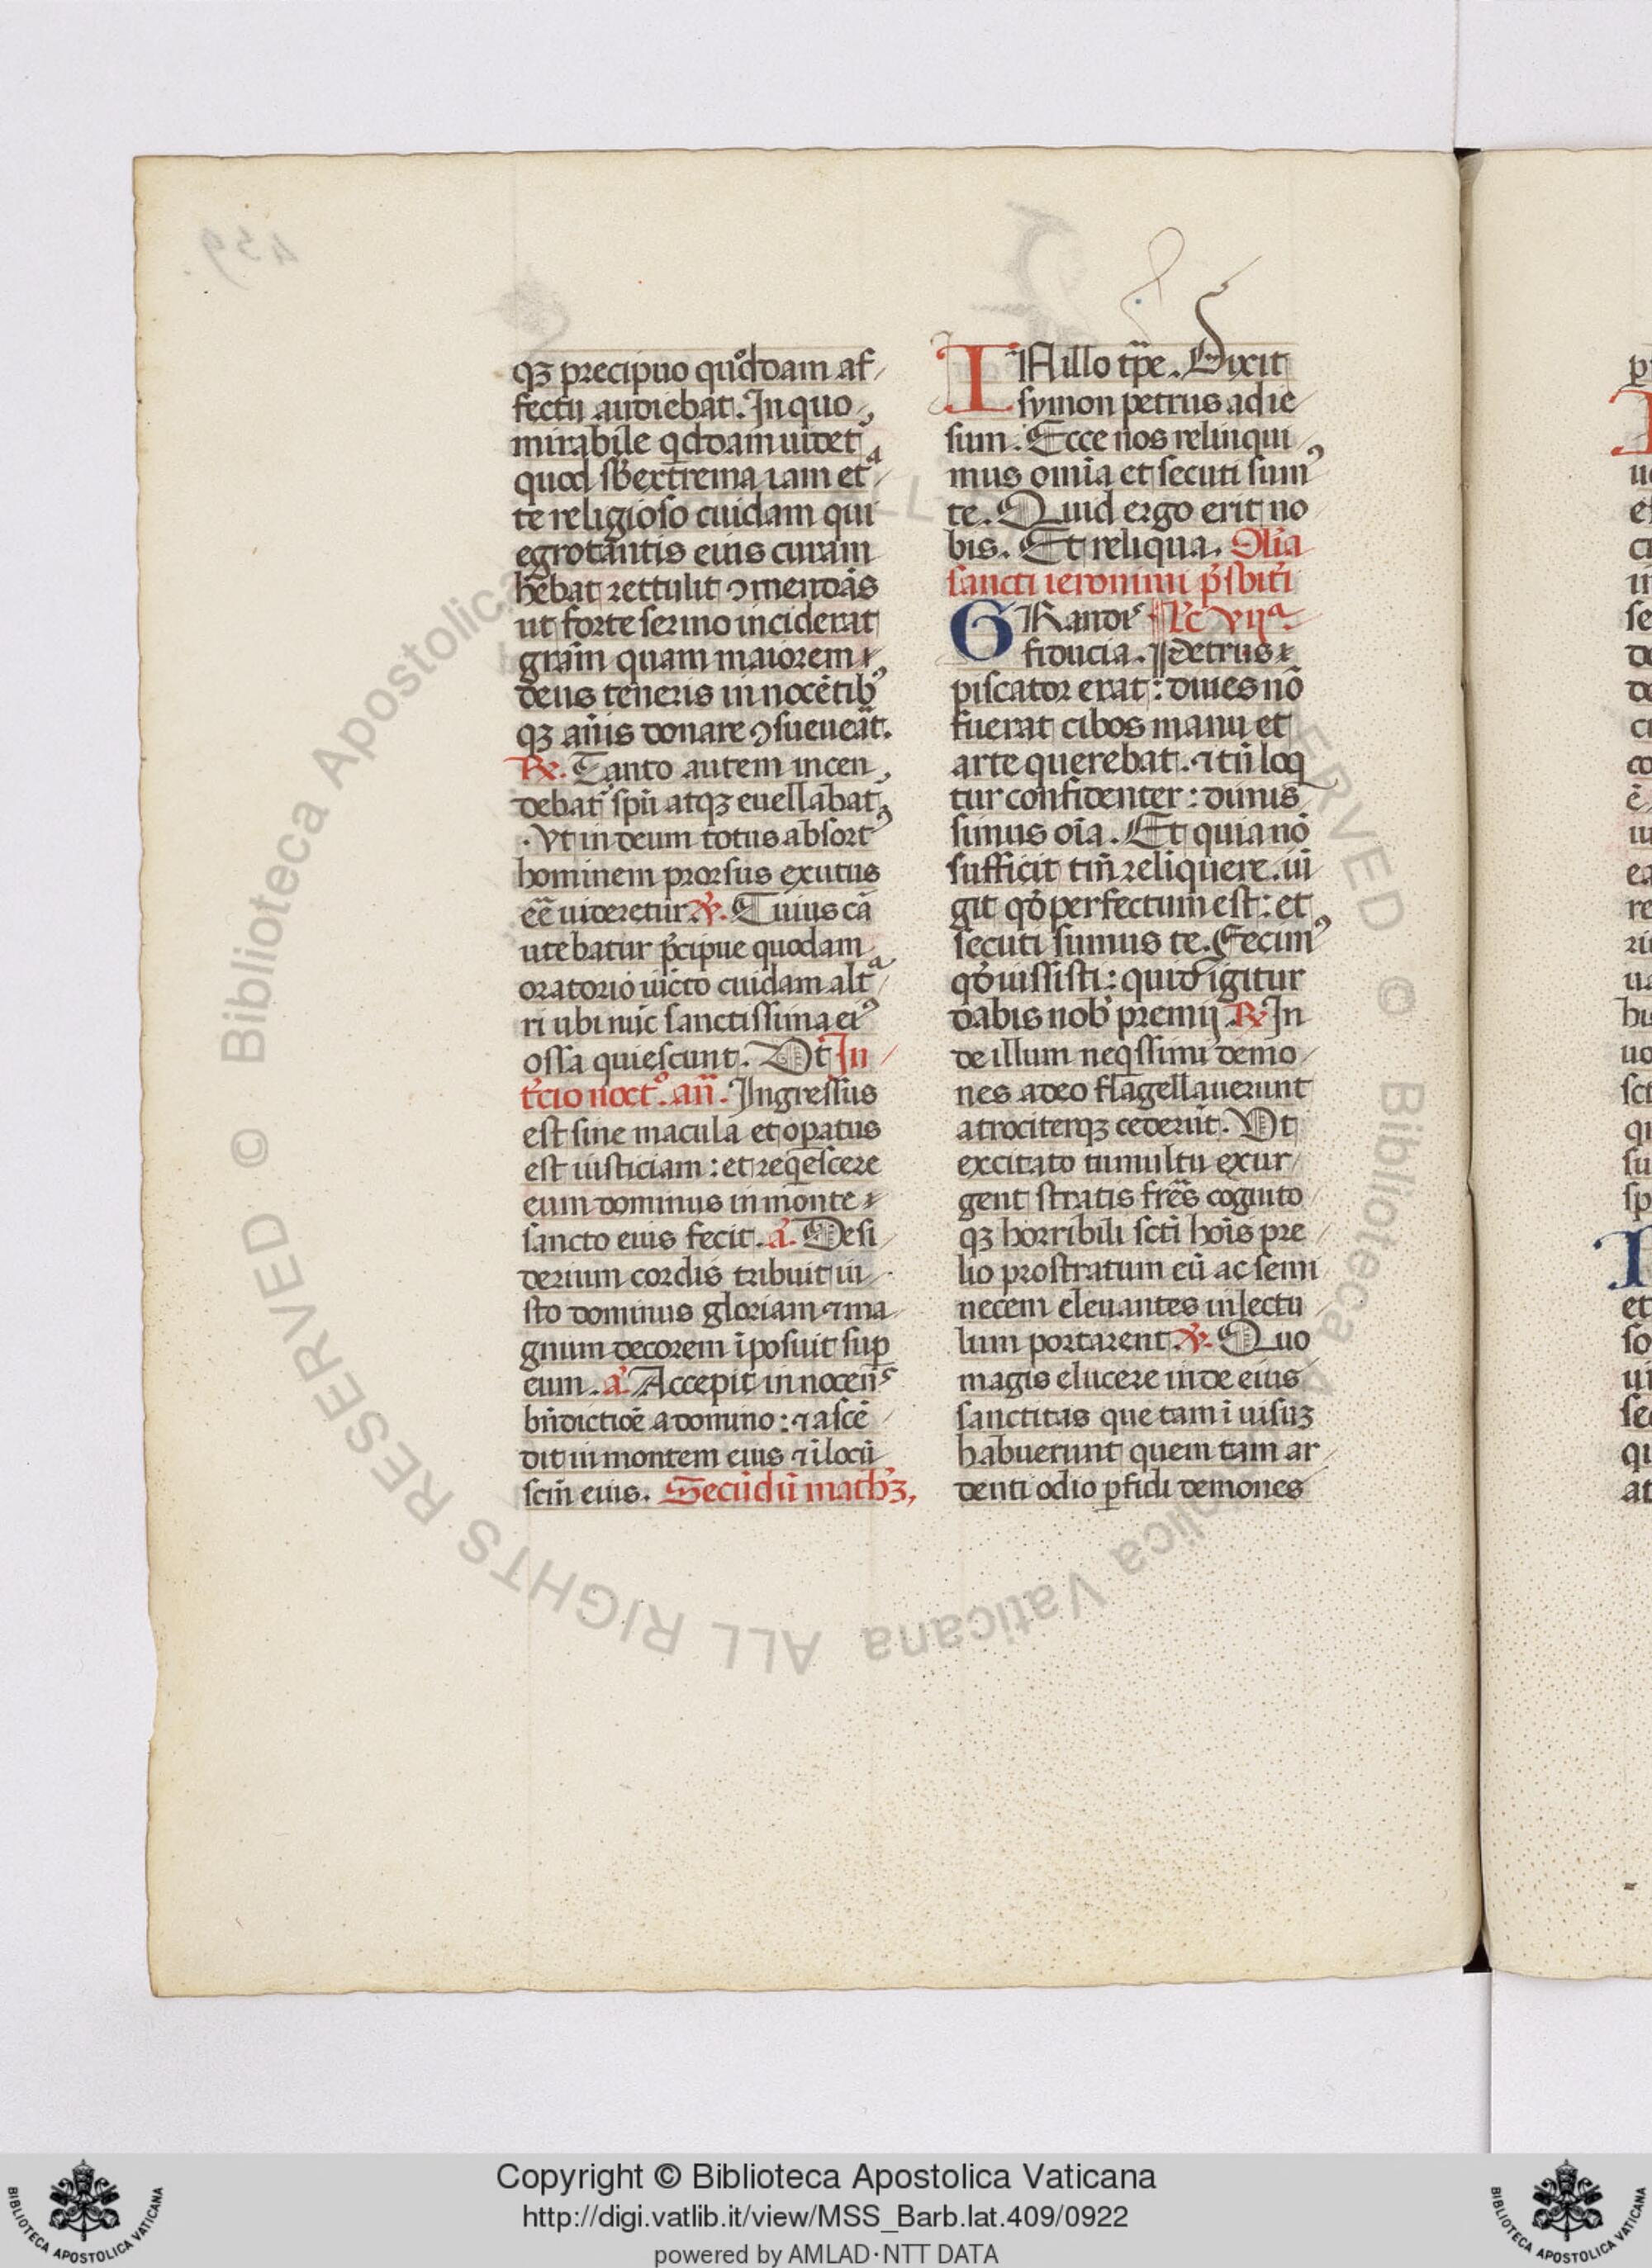 qꝫ precipuo quodoam af
fectu audiebat. In quo
mirabile qdoam uidet
quod sb extrema iam eta
te religioso cuidam qui
egrotantis eius curam
hēbat rettulit ↄmendās
ut forte sermo inciderat
gram quam maiorem
deus teneris in nocētib⁹
qꝫ annis donare ↄsueueāt.
R. Tanto autem incen
debat spū atqꝫ euellabat
. Vt in deum totus absort⁹
hominem prorsus exutus
eē uideretur. V. Cuius cā
utebatur p̄cipue quodam
oratorio iūcto cuidam alta
ri ubi nūc sanctissima ei⁹
ossa quiescunt. Vt In
t'cio noct°. añ. Ingressus
est sine macula et opatus
est iusticiam : et reqescere
eum dominus in monte
sancto euis fecit. a. Desi
derium cordis tribuit iu
sto dominus gloriam ⁊ ma
gnum decorem īposuit sup
eum. a. Accepit in nocens
bn̄dictioē a domino : ⁊ ascē
dit in montem eius ⁊ ī locū
scm̄ euis. Secūdū mathꝫ,
IN illo tp̄e. Dixit
symon petrus ad ie
sum. Ecce nos relinqui
mus omīa et secuti sum⁹
te. Quid ergo erit no
bis. Et reliqua. Olia
sancti ieronimi p̄sbit'i
GRandis Lc vijª.
fiducia. Petrus
piscator erat : diues nō
fuerat cibos manu et
arte querebat. ⁊ tn̄ loq
tur confidenter : dimis
simus oīa. Et quia nō
sufficit tm̄ reliquere. iū
git qd perfectum est : et
secuti sumus te. Fecim⁹
qd uissisti : quid igitur
dabis nob premij. R In
de illum neqssimi demo
nes adeo flagellauerunt
atrociterqꝫ cederūt. Vt
excitato tumultu exur
gent stratis frēs cognito
qꝫ horribili scti hoīs pre
lio prostratum eū ac semi
necem eleuantes in lectu
lum portarent. V. Quo
magis elucere inde eius
sanctitas que tam ī uisuꝫ
habuerunt quem tam ar
denti odio pfidi demones
© Biblioteca Apostolica Vaticana ALL RIGHTS RESERVED
Copyright © Biblioteca Apostolica Vaticana
http://digi.vatlib.it/view/MSS_Barb.lat.409/0922
powered by AMLAD·NTT DATA
BIBLIOTECA APOSTOLICA VATICANA
BIBLIOTECA APOSTOLICA VATICANA